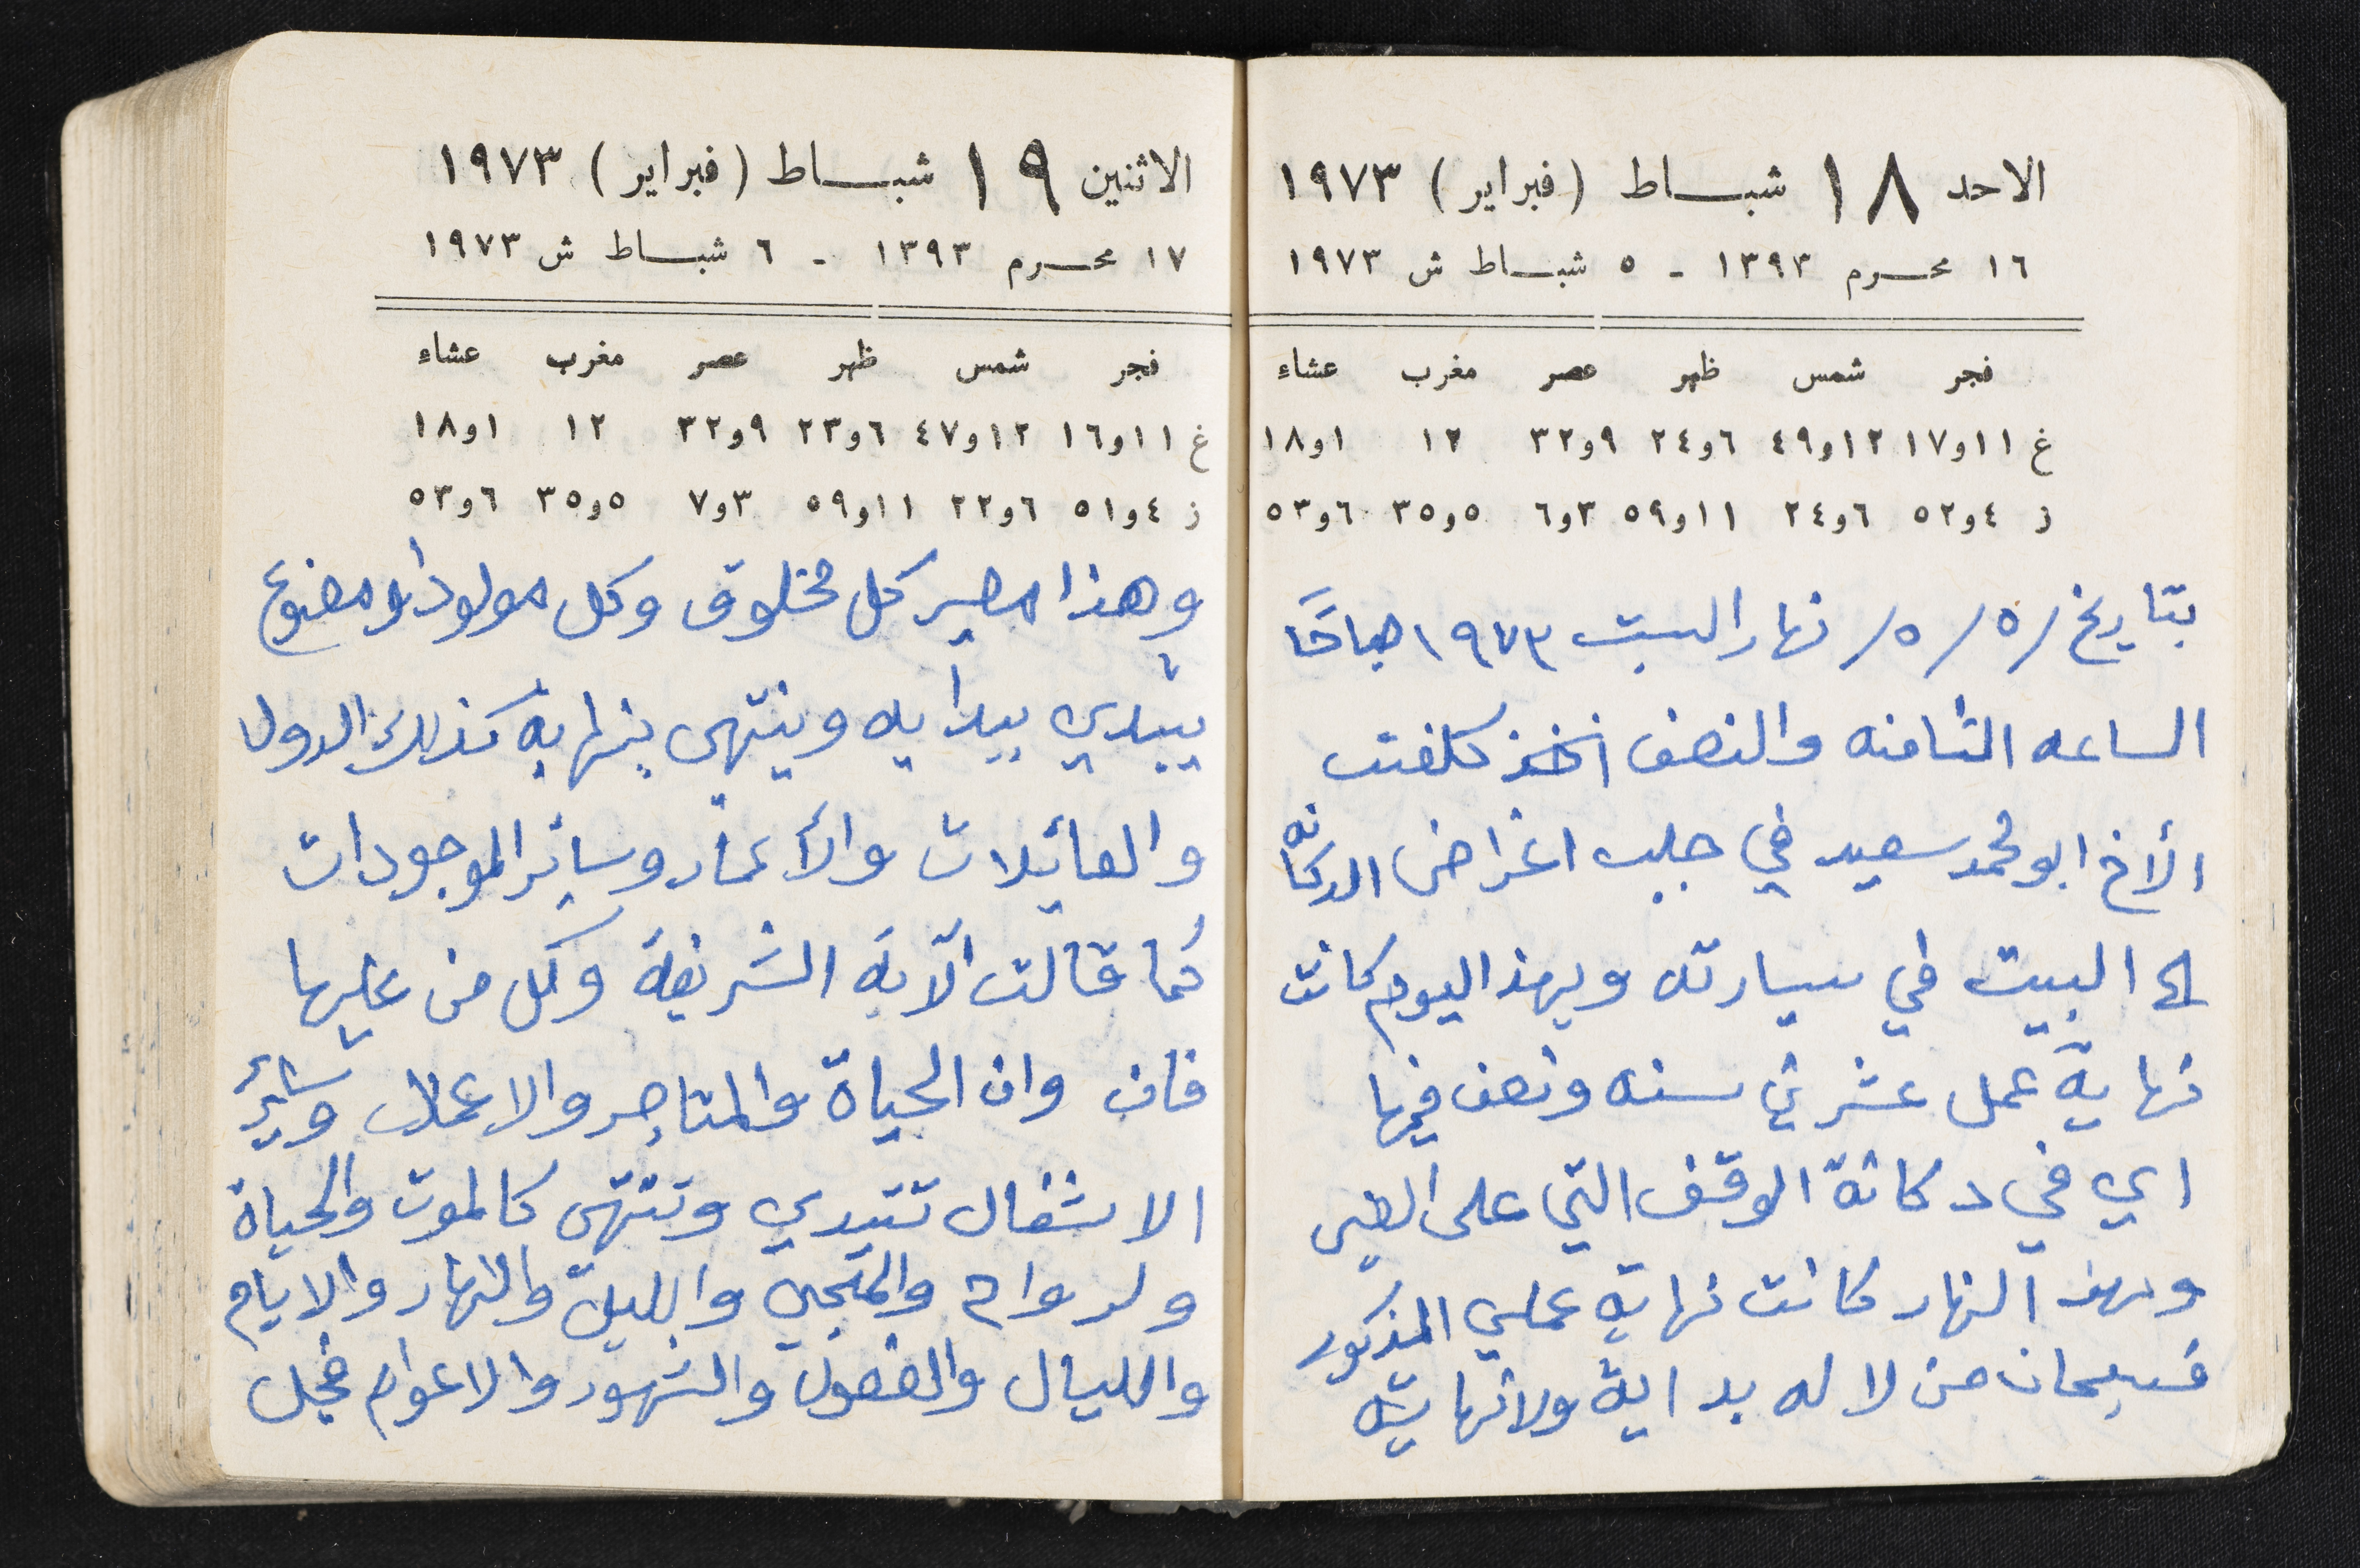 الاحد ١٨ شبـــاط (فبراير) ١٩٧٣
١٦ محـــرم ١٣٩٣ - ٥ شبـــاط ش ١٩٧٣
فجر شمس ظهر عصر مغرب عشاء
غ ١١و١٧ ١٢و٤٩ ٦و٢٤ ٩و٣٢ ١٢ ١و١٨
ز ٤و٥٢ ٦و٢٤ ١١و٥٩ ٣و٦ ٥و٣٥ ٦و٥٣
بتاريخ /٥ /٥/ نهار السبت ١٩٧٣ صباحًا
الساعه الثامنه والنصف اخذ كلفت
الأخ ابو محمد سعيد في جلب اغراض الدكانه
الى البيت في سيارته وبهذا اليوم كانت
نهاية عمل عشرين سنه ونصف فيها
اي في دكانة الوقف التي على العين
وبهذ النهار كانت نهاية عملي المذكور
فسبحان من لا له بداية ولا نهايته
الاثنين ١٩ شبـــاط (فبراير) ١٩٧٣
١٧ محـــرم ١٣٩٣ - ٦ شبـــاط ش ١٩٧٣
فجر شمس ظهر عصر مغرب عشاء
غ ١١و١٦ ١٢و٤٧ ٦و٢٣ ٩و٣٢ ١٢ ١و١٨
ز ٤و٥١ ٦و٢٢ ١١و٥٩ ٣و٧ ٥و٣٥ ٦و٥٣
وهذا مصير كل مخلوق وكل مولود او مصنوع
يبتدي ببدايه وينتهي بنهايه كذلك الدول
والعائيلات والأعمار وسائر الموجودات
كما قالت الآية الشريفة وكل من عليها
فان وان الحياة والمتاجر والاعمال وسائر
الاشغال تبتدي وتنتهي كالموت والحياة
ولرواح والمجي والليل والنهار والايام
والليال والفصول والشهور والاعوام فجل